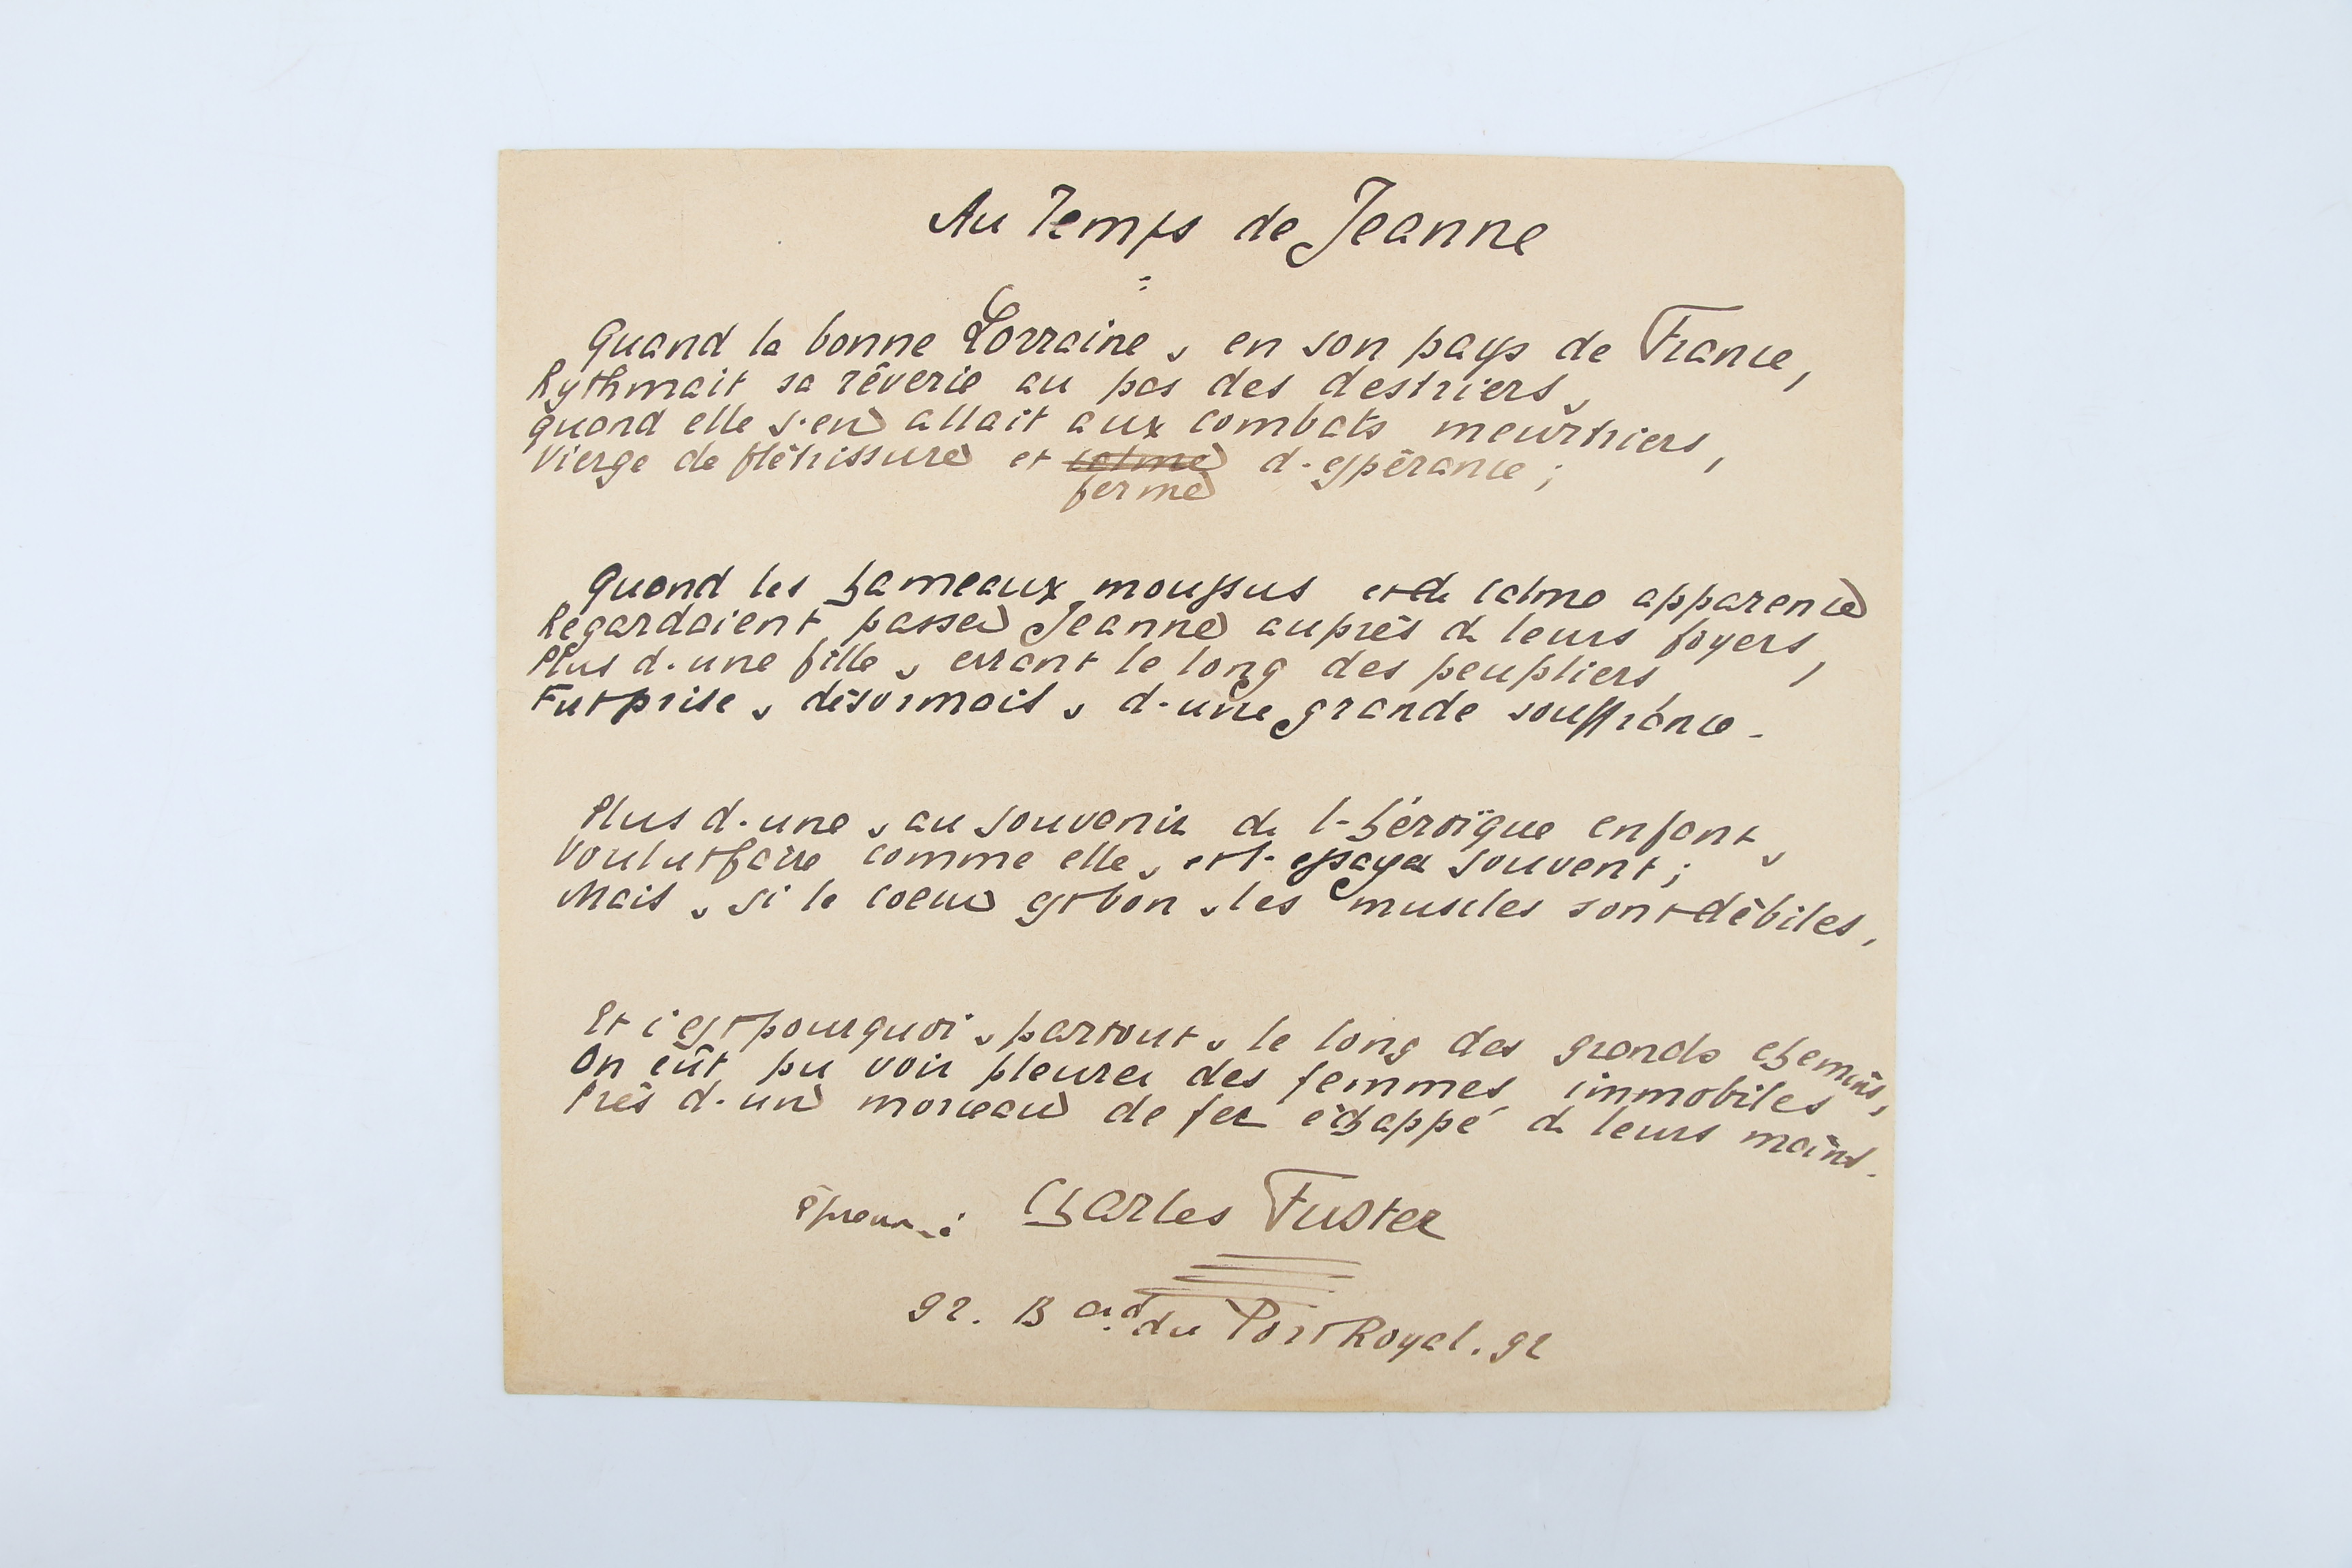 Au Temps de Jeanne
Quand la bonne Lorraine, en son pays de France,
Rythmait sa rêverie au pas des destriers,
quand elle s'en allait aux combats meurtriers,
Vierge de flétrissure et calme d'espérance ;
ferme
Quand les hameaux moussus et de calme apparence
Regardaient passer Jeanne auprès de leurs foyers,
Plus d'une fille, errant le long des peupliers
Fut prise, désormais, d'une grande souffrance.
Plus d'une, au souvenir de l'héroïque enfant,
Voulut faire comme elle, et l'essaya souvent ;
Mais, si le coeur est bon, les muscles sont débiles,
Et c'est pourquoi, partout, le long des grands chemins,
On eût pu voir pleurer des femmes immobiles
Près d'un morceau de fer échappé de leurs mains.
épreuve : Charles Fuster
92. B ard du Port Royal. 92